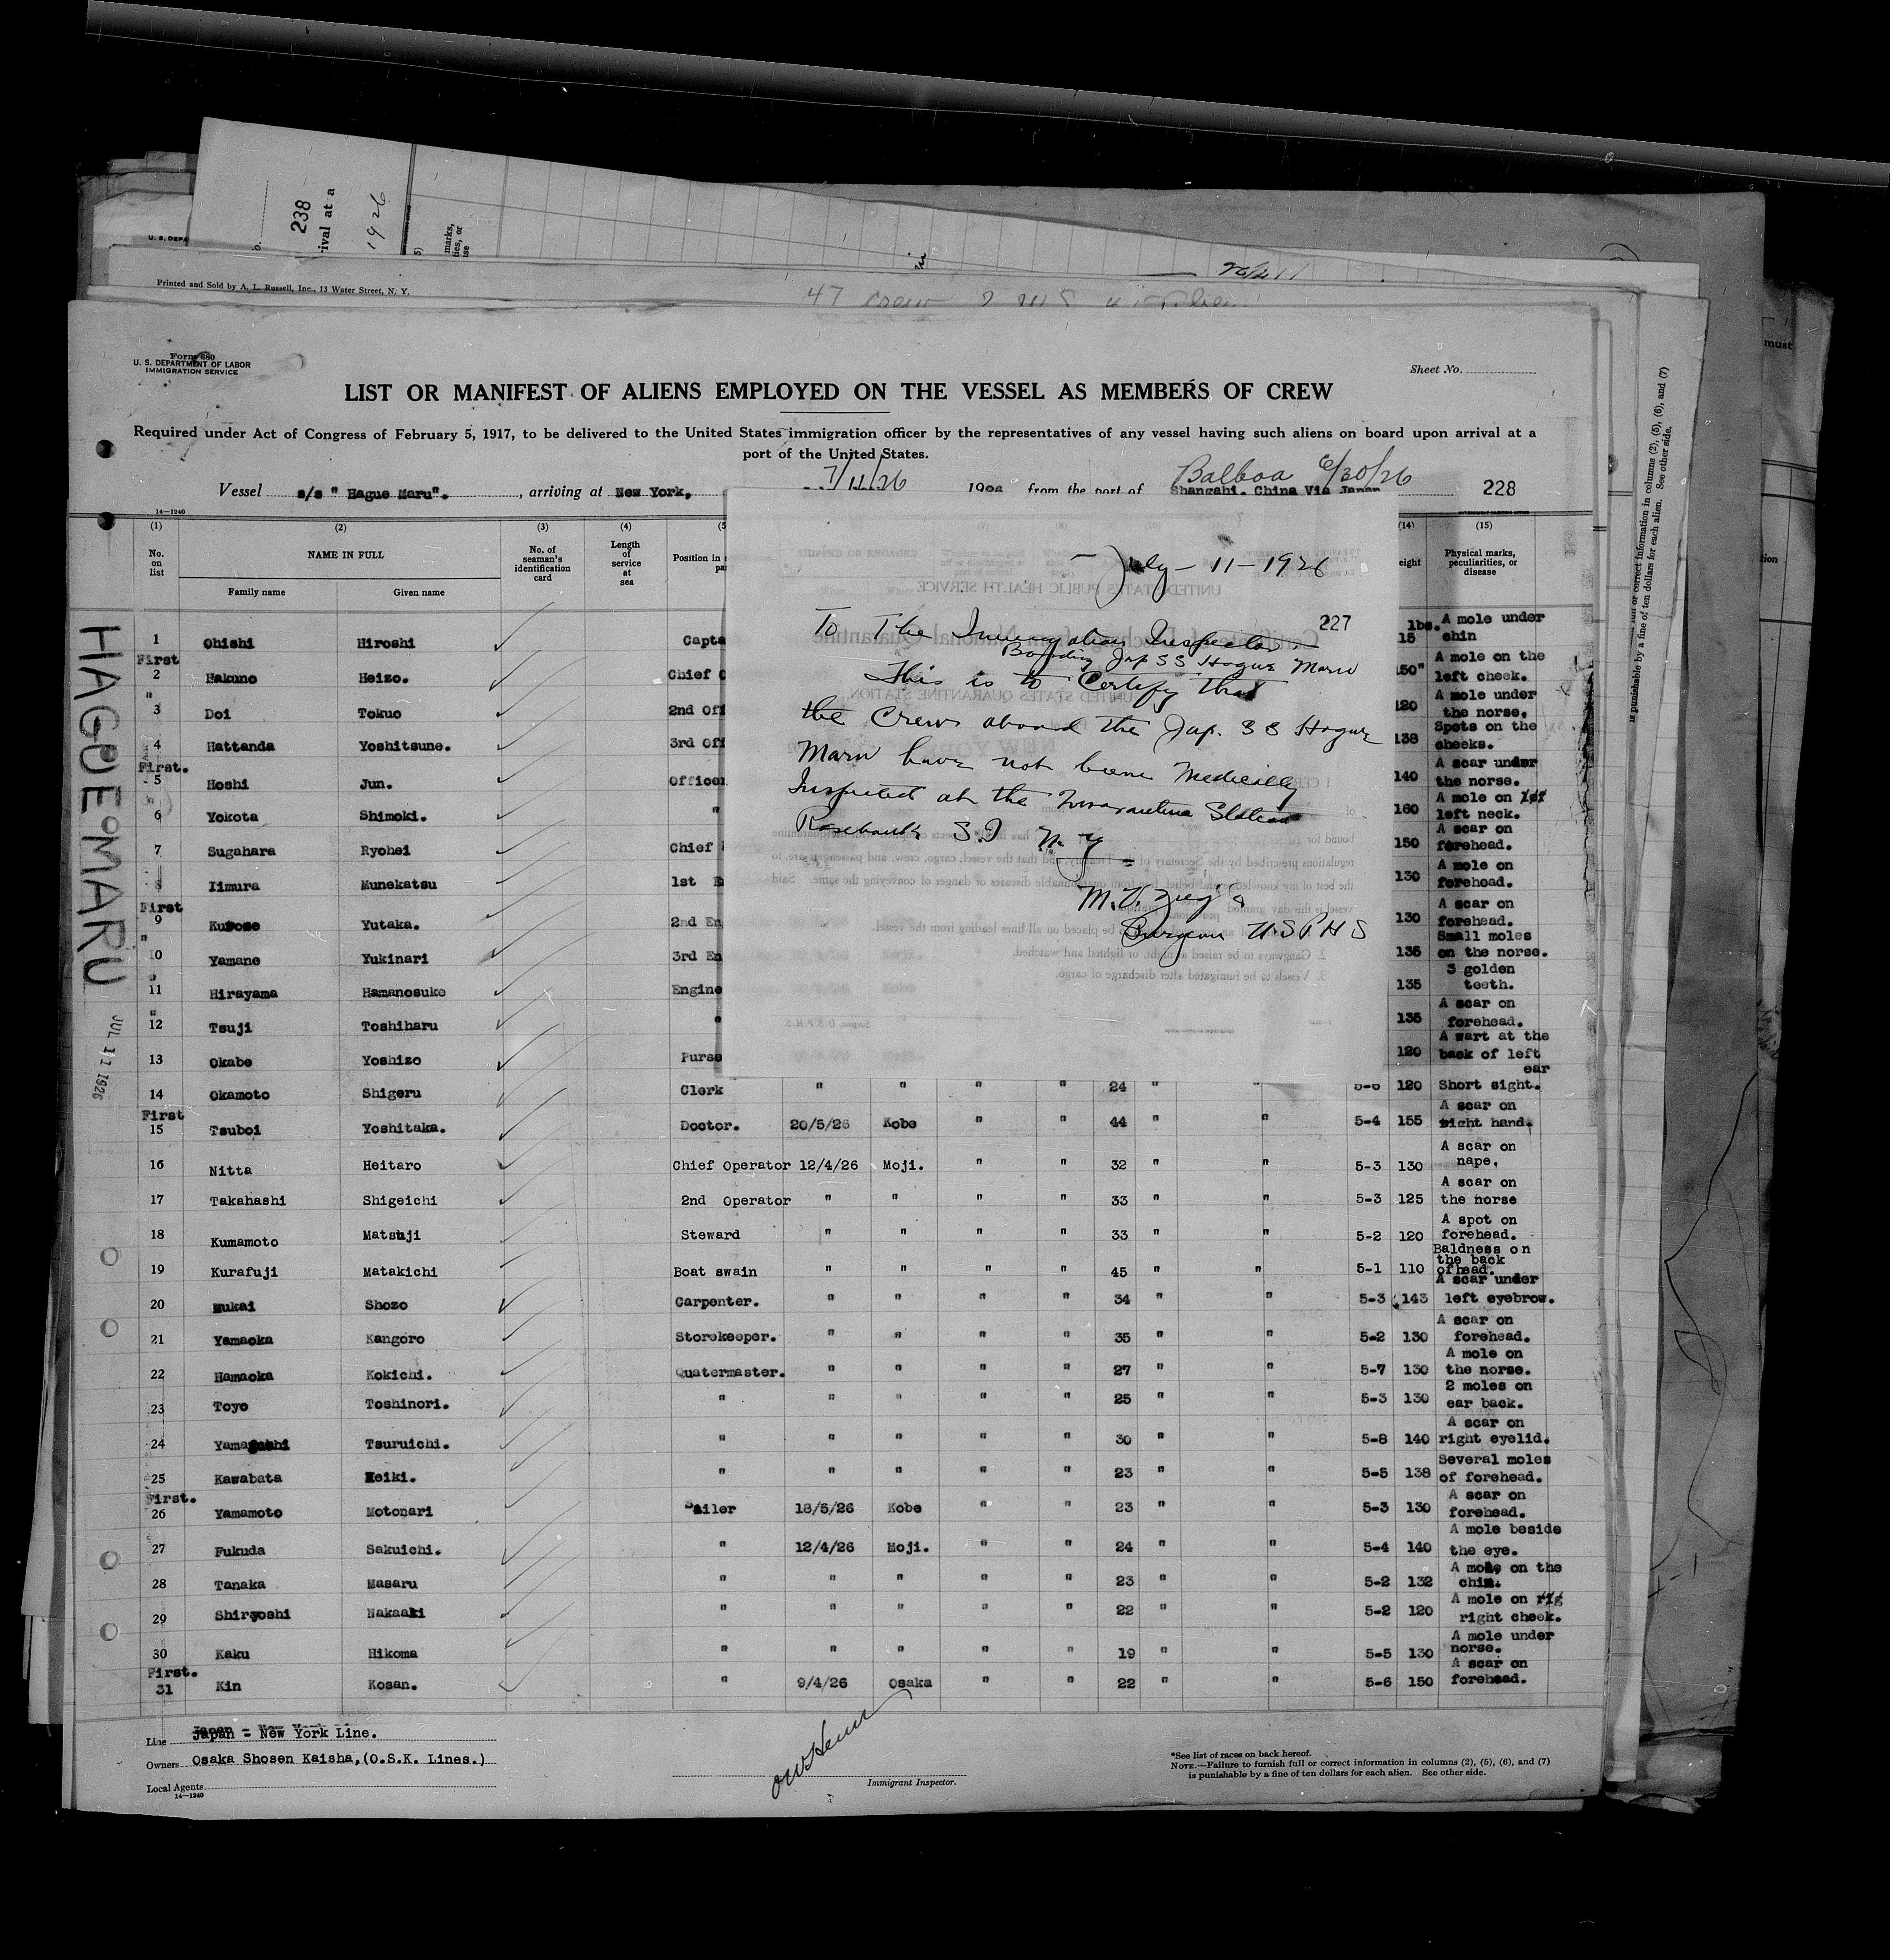 238
ival at a
1926
marks,
ties, or
ase
U. S. DEPA
Printed and Sold by A. L. Russell, Inc., 13 Water Street, N. Y.
47 crew
Form 680
U. S. DEPARTMENT OF LABOR
IMMIGRATION SERVICE
Sheet No.
LIST OR MANIFEST OF ALIENS EMPLOYED ON THE VESSEL AS MEMBERS OF CREW
Required under Act of Congress of February 5, 1917, to be delivered to the United States immigration officer by the representatives of any vessel having such aliens on board upon arrival at a
port of the United States.
7/11/26 Balboa 6/30/26
Vessel s/s " Hague Maru". , arriving at New York, from the port of Shanghai, China Via Japan 228
14—1240
(1) (2) (3) (4) (5 (14) (15)
No. on list NAME IN FULL No. of seaman's identification card Length of service at sea Position in s pa eight Physical marks, peculiarities, or disease
Family name Given name
July - 11 - 1926
227
To The Immigration Inspector
Boarding Jap SS Hague Maru
This is to Certify that
the Crew aboard the Jap. SS Hague
Maru have not been Medically
Inspected at the Quarantine Station
Rosebank S.I N.Y
Surgeon U.S.P.H.S
1 Ohishi Hiroshi Capta lbs. 15 A mole under chin
First
2 Hakuno Heizo. Chief O 150" A mole on the left cheek.
"
3 Doi Tokuo 2nd Off 120 A mole under the norse.
4 Hattanda Yoshitsune. 3rd Off 138 Spots on the cheeks.
First.
5 Hoshi Jun. Officer 140 A scar under the norse.
"
6 Yokota Shimoki. " 160 A mole on left neck.
7 Sugahara Ryohei Chief 150 A scar on forehead.
8 Iimura Munekatsu 1st E 130 A mole on forehead.
First
9 Kurose Yutaka. 2nd En 130 A scar on forehead.
"
10 Yamane Yukinari 3rd En 135 Small moles on the norse.
"
11 Hirayama Hamanosuke Engine 135 3 golden teeth.
"
12 Tsuji Toshiharu " 135 A scar on forehead.
13 Okabe Yoshizo Purse 120 A wart at the back of left ear
14 Okamoto Shigeru Clerk " " " " 24 " " 5-6 120 Short sight.
First
15 Tsuboi Yoshitaka. Doctor. 20/5/26 Kobe " " 44 " " 5-4 155 A scar on right hand.
16 Nitta Heitaro Chief Operator 12/4/26 Moji. " " 32 " " 5-3 130 A scar on nape.
17 Takahashi Shigeichi 2nd Operator " " " " 33 " " 5-3 125 A scar on the norse
18 Kumamoto Matsuji Steward " " " " 33 " " 5-2 120 A spot on forehead.
19 Kurafuji Matakichi Boat swain " " " " 45 " " 5-1 110 Baldness on the back of head.
20 Mukai Shozo Carpenter. " " " " 34 " " 5-3 143 A scar under left eyebrow.
21 Yamaoka Kangoro Storekeeper. " " " " 35 " " 5-2 130 A scar on forehead.
22 Hamaoka Kokichi. Quatermaster. " " " " 27 " " 5-7 130 A mole on the norse.
23 Toyo Toshinori. " " " " " 25 " " 5-3 130 2 moles on ear back.
24 Tsuruichi. " " " " " 30 " " 5-8 140 A scar on right eyelid.
25 Kawabata Keiki. " " " " " 23 " " 5-5 138 Several moles of forehead.
First.
26 Yamamoto Motonari Sailer 18/5/26 Kobe " " 23 " " 5-3 130 A scar on forehead.
27 Fukuda Sakuichi. " 12/4/26 Moji. " " 24 " " 5-4 140 A mole beside the eye.
28 Tanaka Masaru " " " " " 23 " " 5-2 132 A mole on the chin.
29 Shiryoshi Nakaaki " " " " " 22 " " 5-2 120 A mole on right cheek.
30 Kaku Hikoma " " " " " 19 " " 5-5 130 A mole under norse.
First.
31 Kin Kosan. " 9/4/26 Osaka " " 22 " " 5-6 150 A scar on forehead.
HAGUE MARU
JUL 11 1926
Line Japan - New York Line.
Owners Osaka Shosen Kaisha,(O.S.K. Lines.)
Local Agents
14—1240
Immigrant Inspector.
*See list of races on back hereof.
NOTE.—Failure to furnish full or correct information in columns (2), (5), (6), and (7)
is punishable by a fine of ten dollars for each alien. See other side.
or correct information in columns (2), (5), (6), and (7)
is punishable by a fine of ten dollars for each alien. See other side.
must
tion